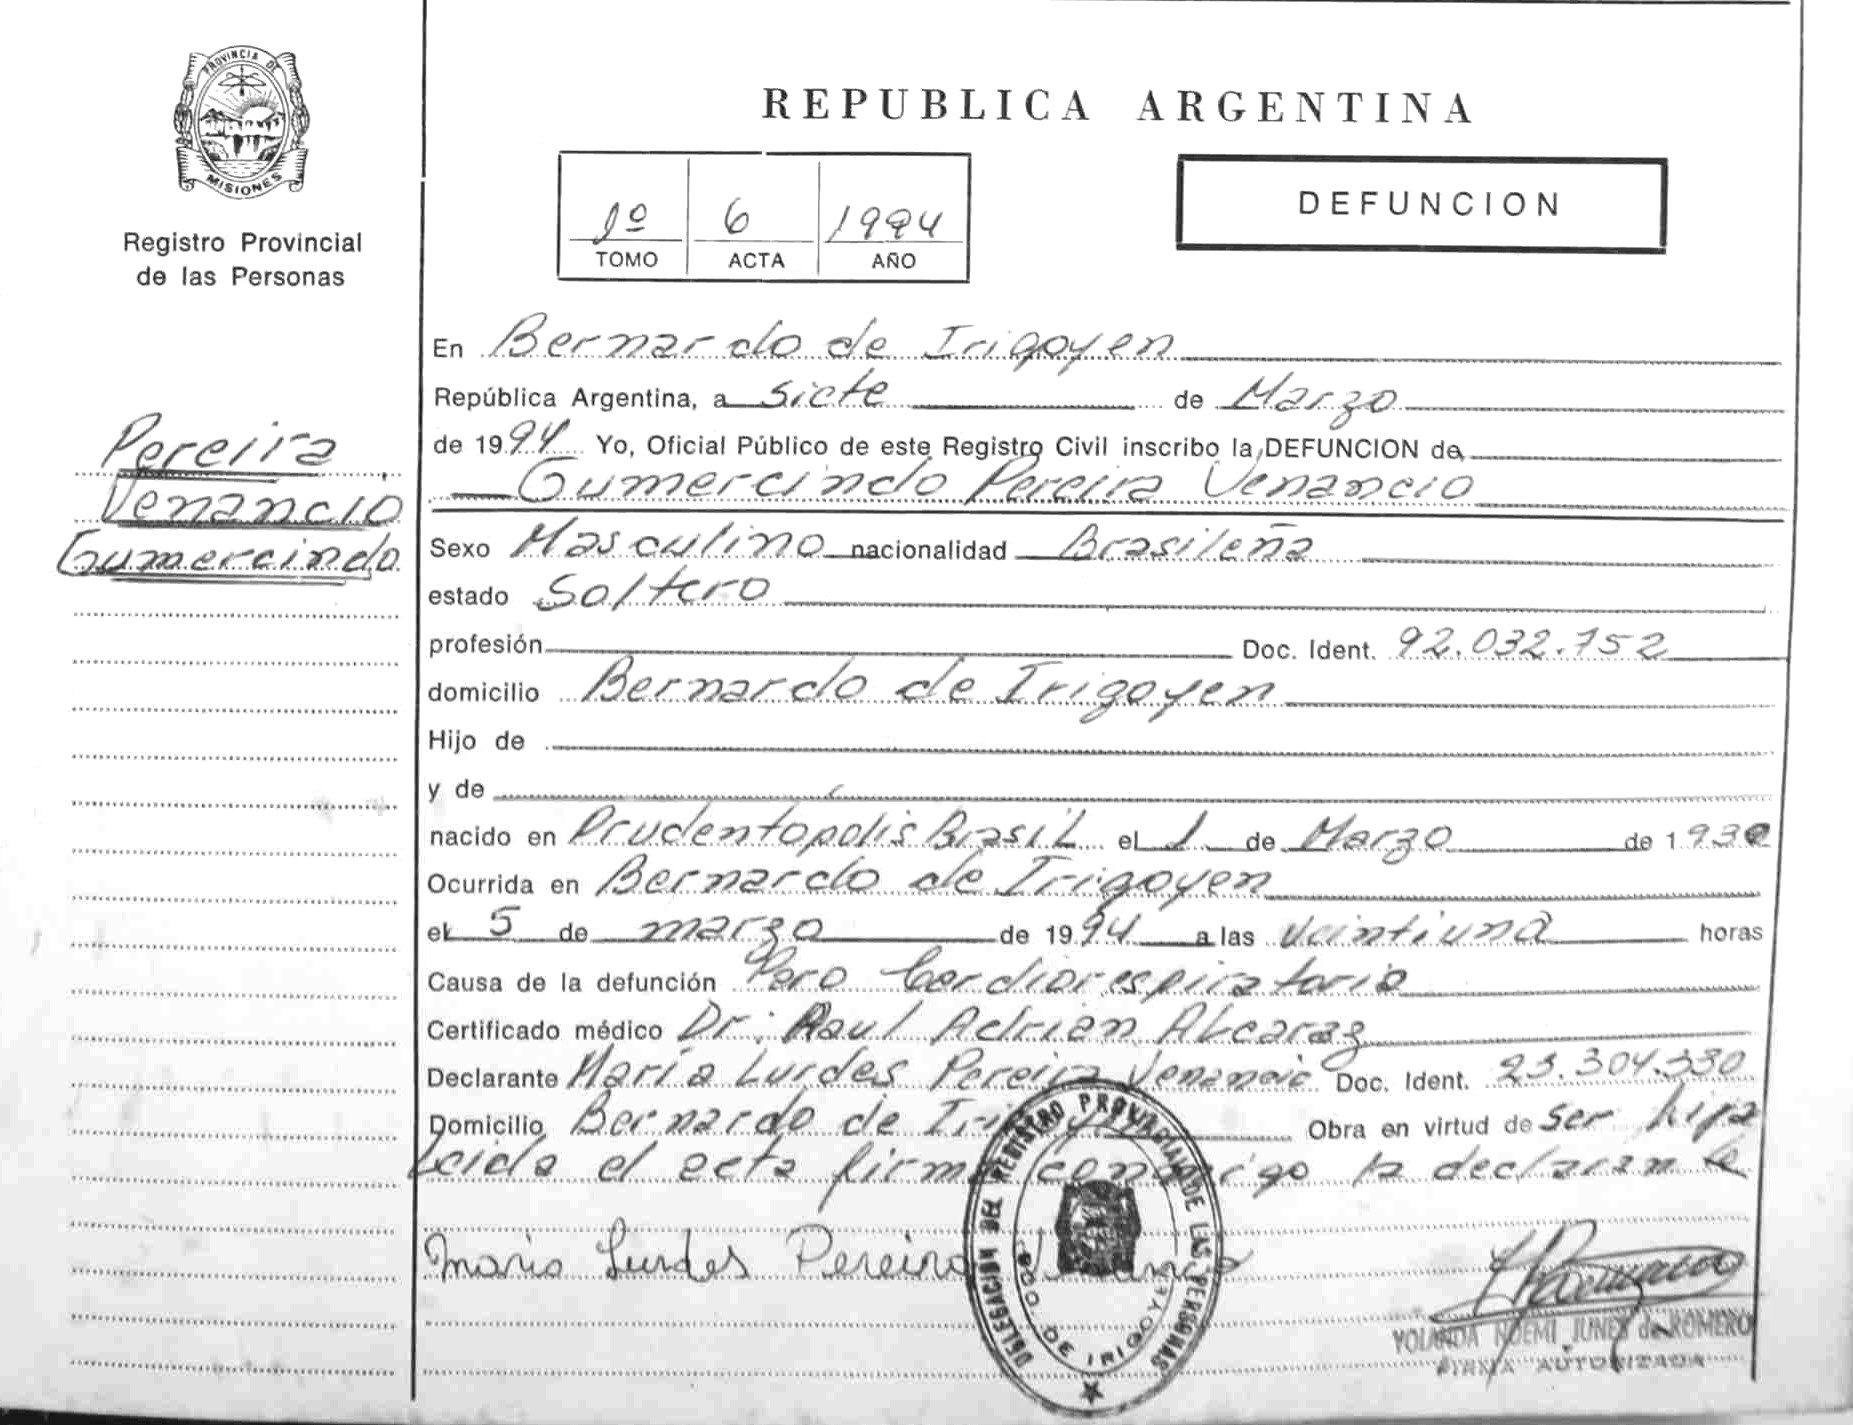 PROVINCIA DE
MISIONES
Registro Provincial
de las Personas
Pereira
Venancio
Gumercindo
REPUBLICA ARGENTINA
1º 6 1994
TOMO ACTA AÑO
DEFUNCION
En Bernardo de Irigoyen
República Argentina, a siete de Marzo
de 1994 Yo, Oficial Público de este Registro Civil inscribo la DEFUNCION de
Gumercindo Pereira Venancio
Sexo Masculino nacionalidad Brasileña
estado Soltero
profesión Doc. Ident. 92.032.752
domicilio Bernardo de Irigoyen
Hijo de
y de
nacido en Prudentopolis Brasil el 1 de Marzo de 1930
Ocurrida en Bernardo de Irigoyen
el 5 de marzo de 1994 a las veintiuna horas
Causa de la defunción Paro Cardiorespiratorio
Certificado médico Dr. Raul Adrian Alcaraz
Declarante María Lurdes Pereira Venancio Doc. Ident. 23.304.330
Domicilio Bernardo de Irigoyen Obra en virtud de ser hija
Leida el acta firma conmigo la declarante
Maria Lurdes Pereira Venancio
DELEGACION DEL REGISTRO PROVINCIAL DE LAS PERSONAS
BDO. DE IRIGOYEN
YOLANDA NOEMI JUNES de ROMERO
FIRMA AUTORIZADA